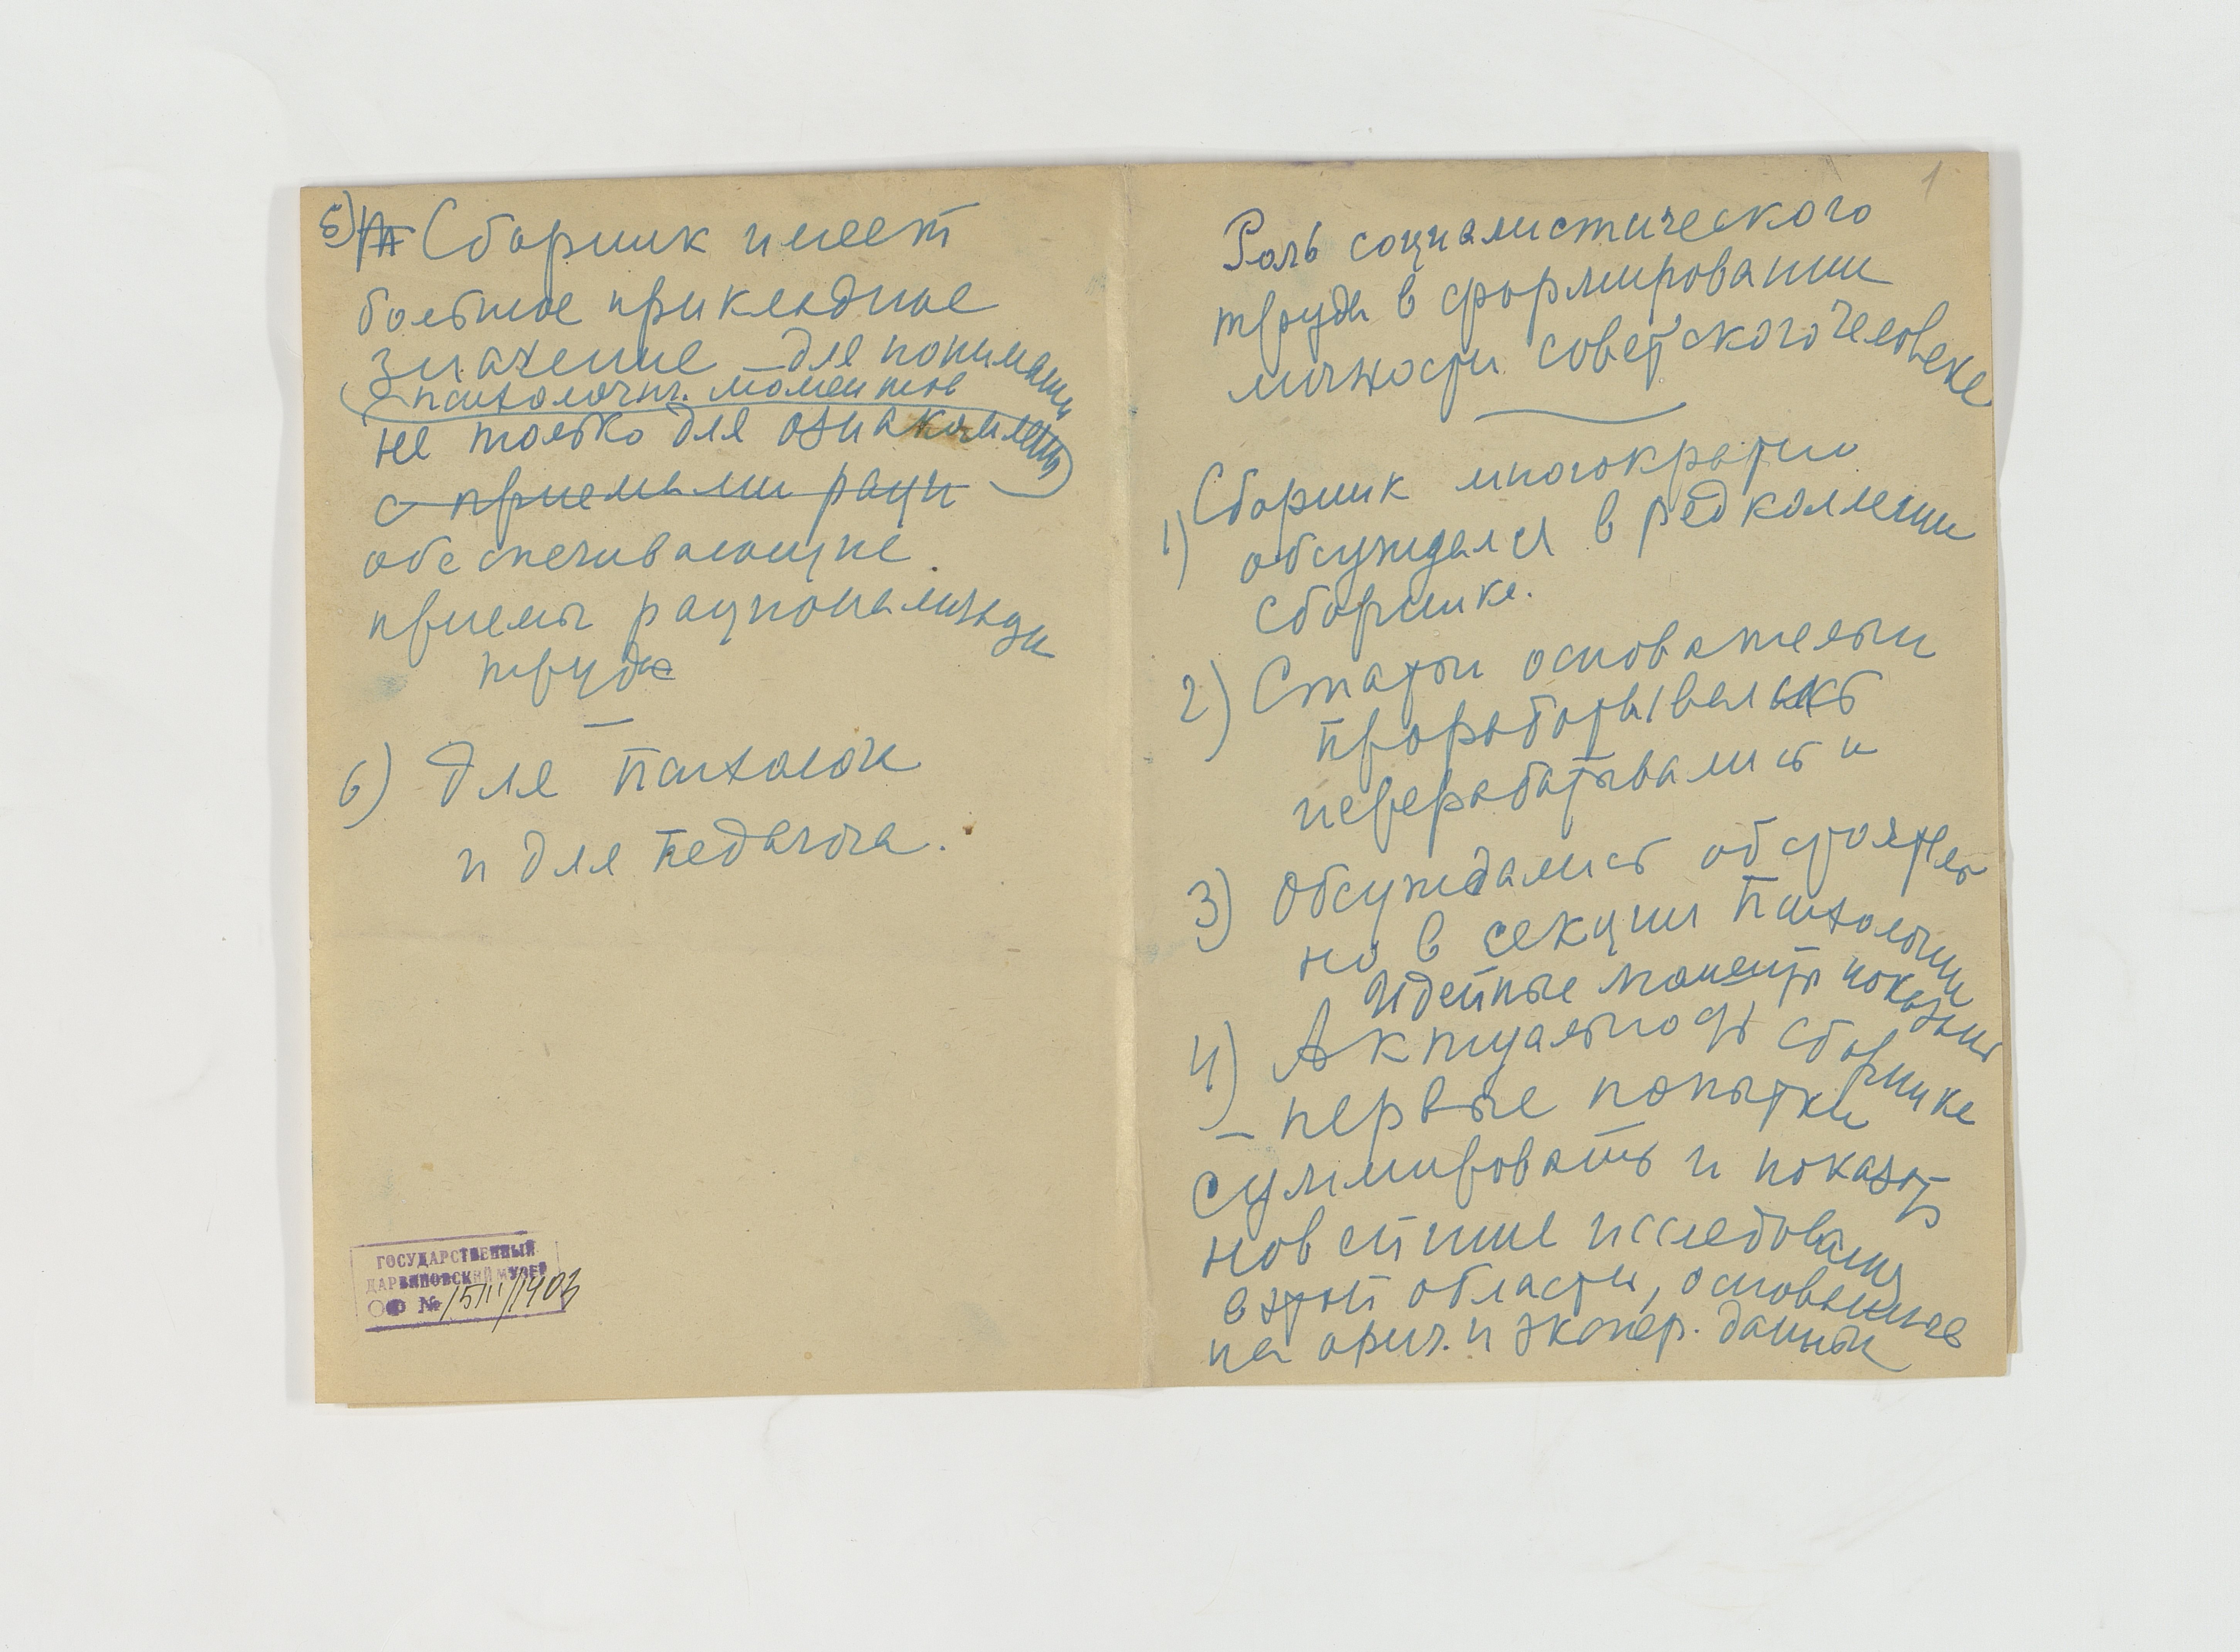 5) Сборник имеет
большое прикладное
значение для понимания
психологич. моментов
не только для ознакомлен
с приемами раци
обеспечивающие
приемы рационализаци
труда
6) Для психолога
и для педагога.
ГОСУДАРСТВЕННЫЙ
ДАРВИНОВСКИЙ МУЗЕЙ
ОФ № 15111/1403
1
Роль социалистического
труда в формировании
личности советского человека
1) Сборник многократно
обсуждался в редколлегии
сборника.
2) Статьи основательн
прорабатывались
перерабатывались и
3) Обсуждались обстоятель
но в секции психологии
Идейные моменты
4) Актуальность сборника
– первые попытки
суммировать и показать
новейшие исследования
в этой области, основанные
на ориг. и экспер. данных